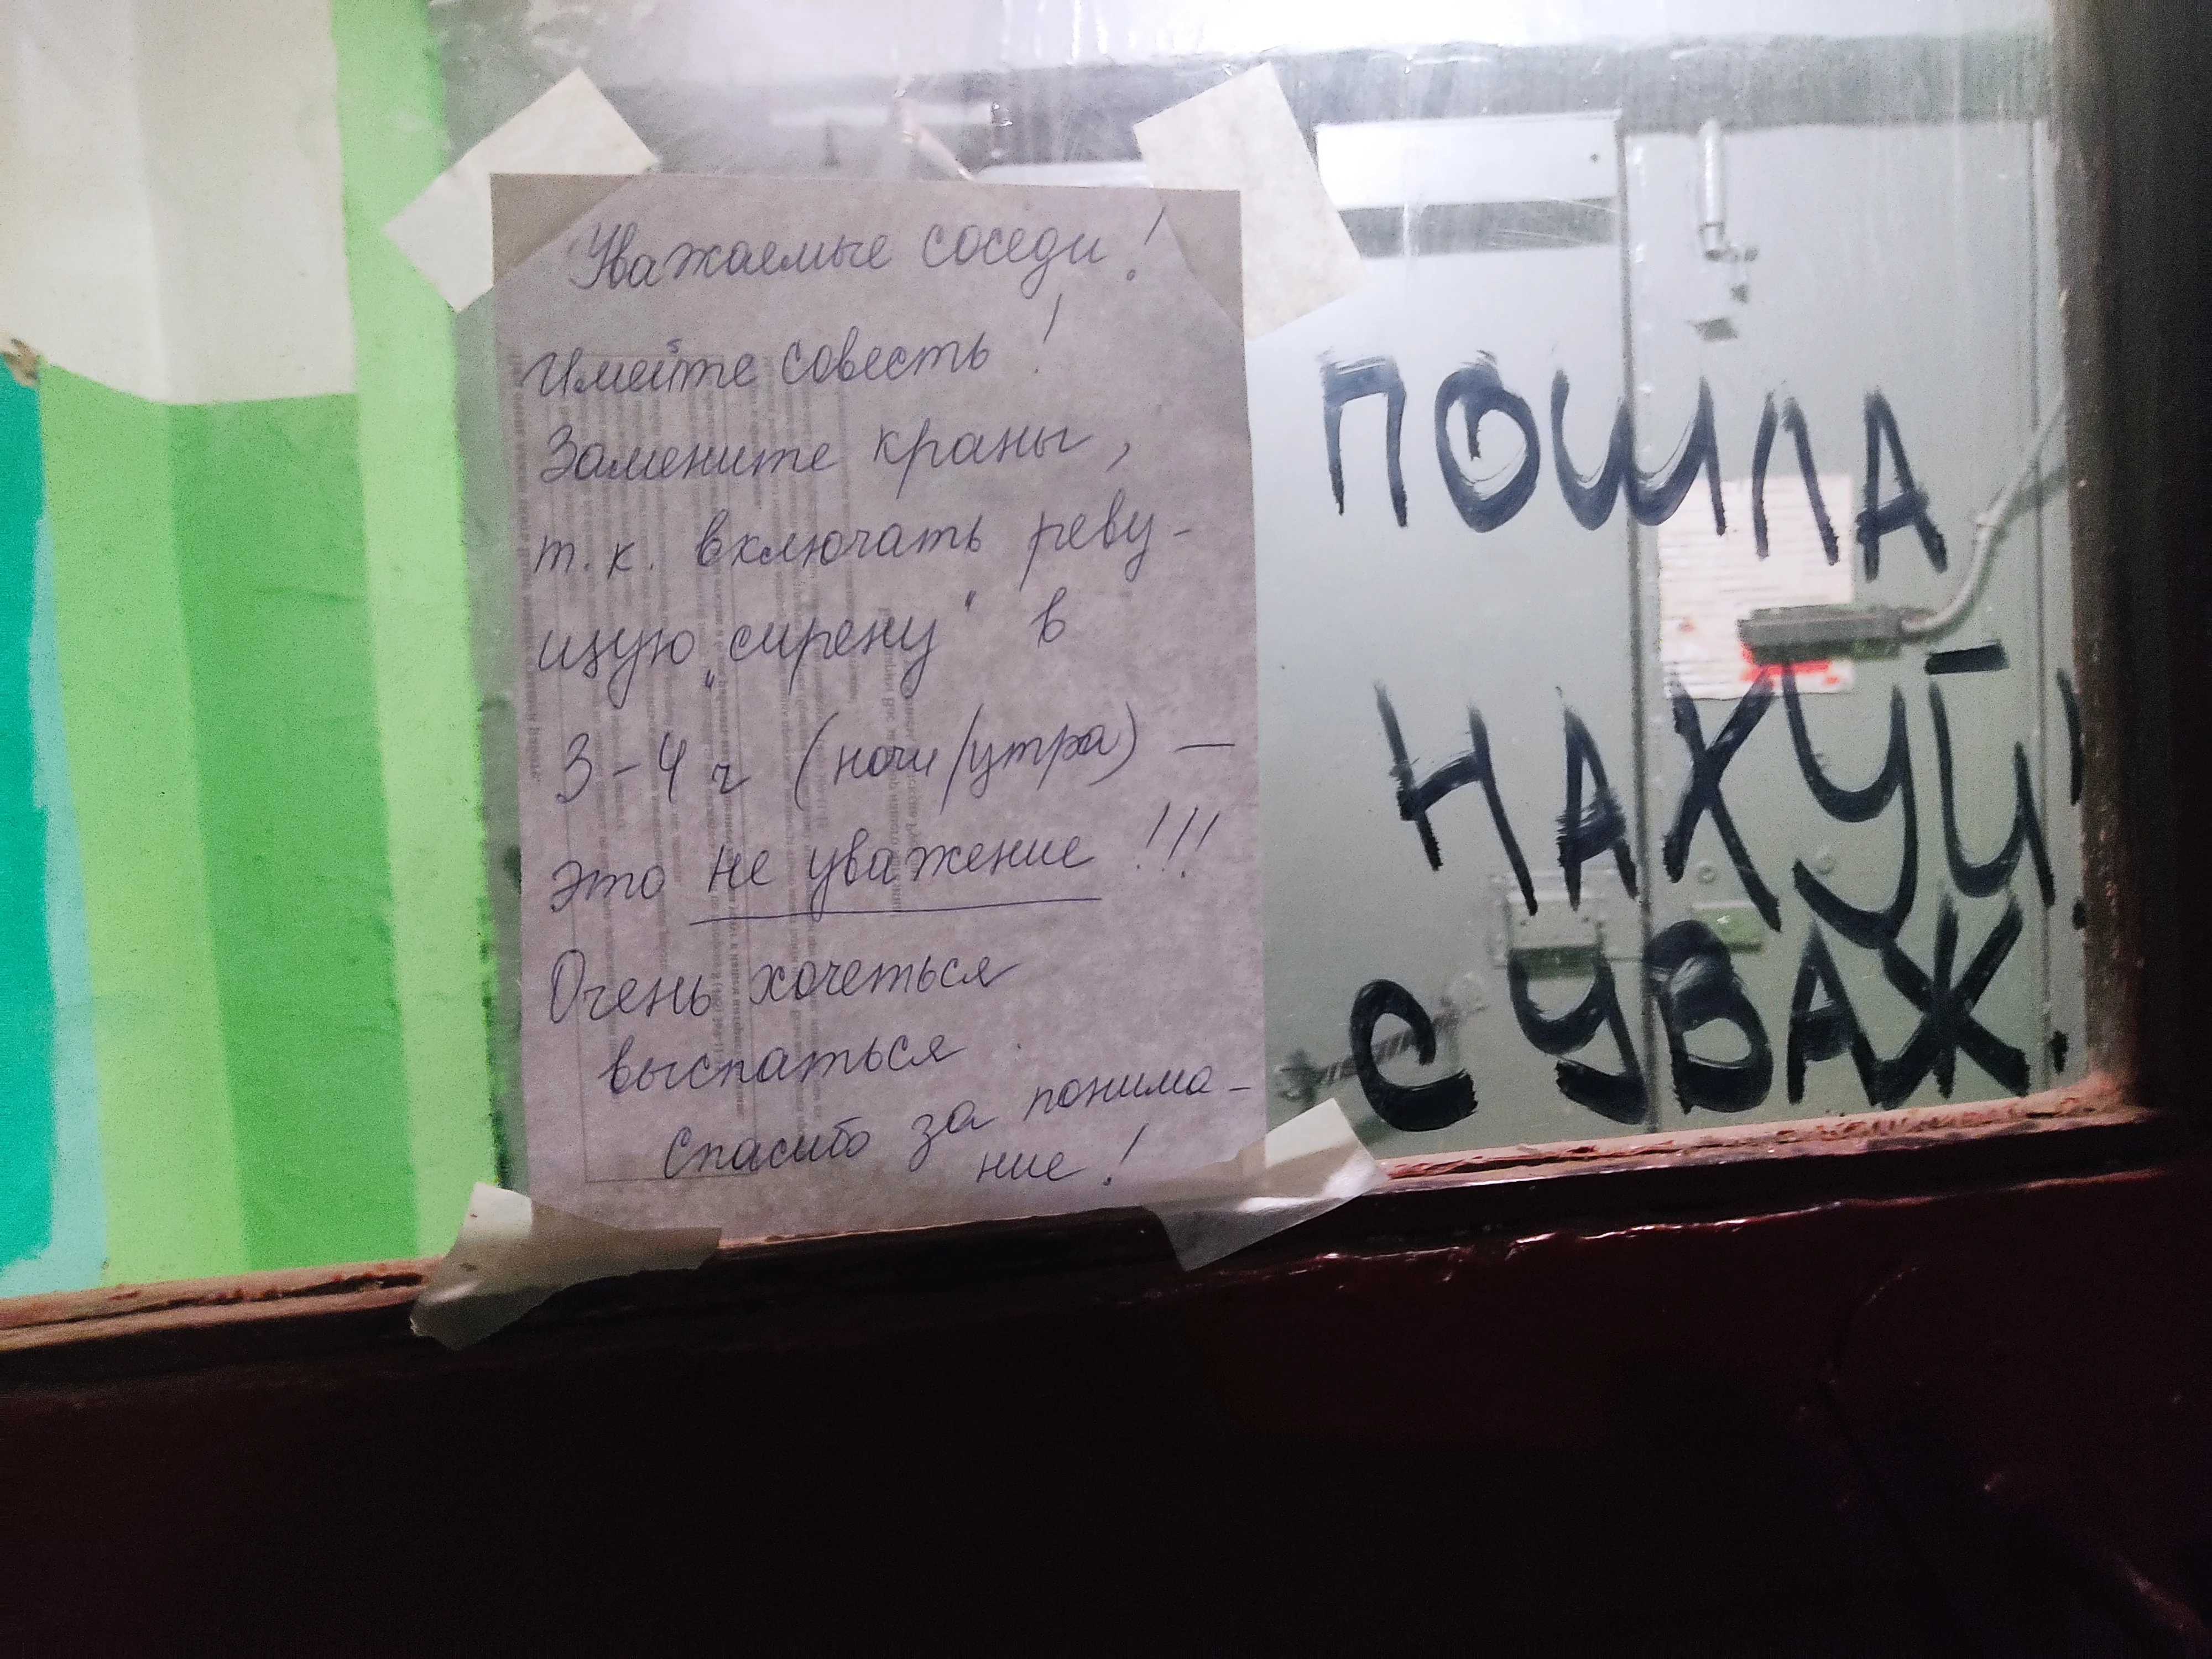 Уважаемые соседи!
Имейте совесть!
Замените краны,
т.к. включать реву-
щую „сирену" в
3-4 ч (ночи/утра) —
это не уважение!!!
Очень хочеться
выспаться.
Спасибо за понима-
ние!
ПОШЛА
НАХУЙ!
С УВАЖ.